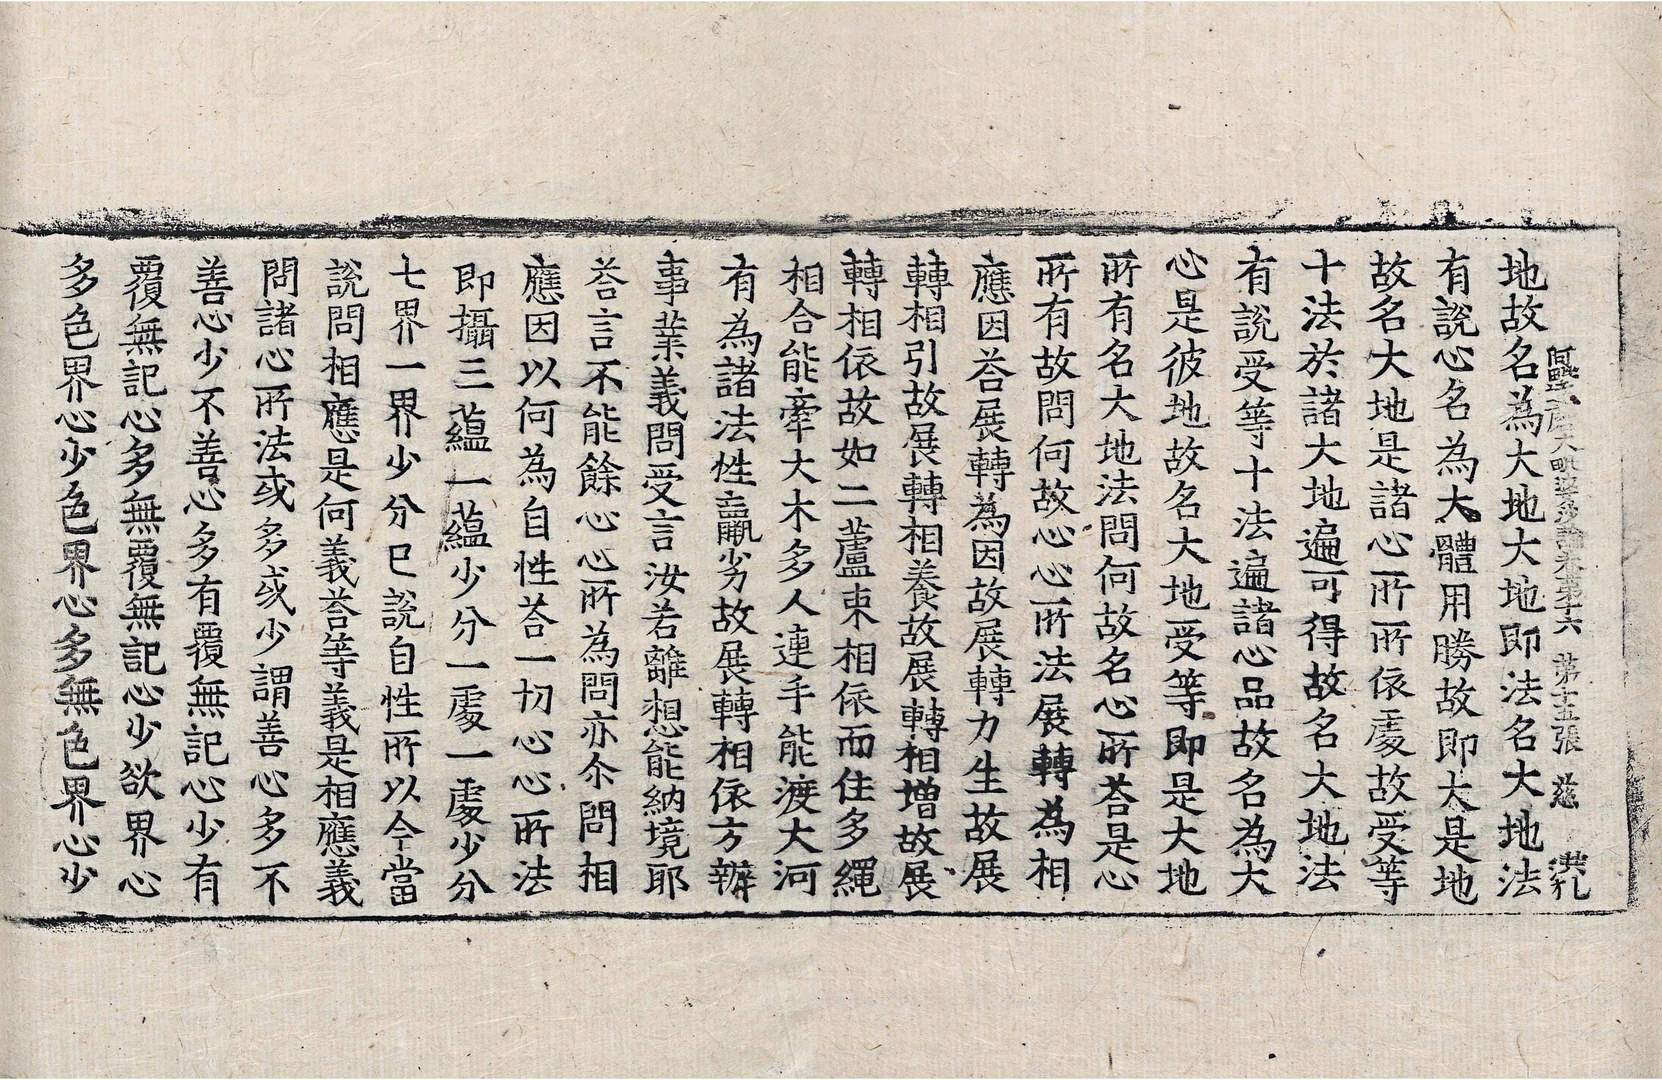 阿毗達磨大毗婆沙論卷第十六 第十五張 慈 洪札
地故名為大地大地即法名大地法
有說心名為大體用勝故即大是地
故名大地是諸心所所依處故受等
十法於諸大地遍可得故名大地法
有說受等十法遍諸心品故名為大
心是彼地故名大地受等即是大地
所有名大地法問何故名心所荅是心
所有故問何故心心所法展轉為相
應因荅展轉為因故展轉力生故展
轉相引故展轉相養故展轉相增故展
轉相依故如二蘆束相依而住多繩
相合能牽大木多人連手能渡大河
有為諸法性羸劣故展轉相依方辦
事業義問受言汝若離想能納境耶
荅言不能餘心心所為問亦尒問相
應因以何為自性荅一切心心所法
即攝三蘊一蘊少分一處一處少分
七界一界少分已說自性所以今當
說問相應是何義荅等義是相應義
問諸心所法或多或少謂善心多不
善心少不善心多有覆無記心少有
覆無記心多無覆無記心少欲界心
多色界心少色界心多無色界心少